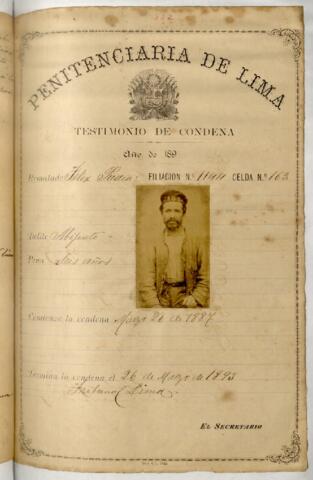 PENITENCIARIA DE LIMA
TESTIMONIO DE CONDENA
Año de 189
Rematado Felix FILIACION N.° CELDA N.° 163
Delito Abijeato
Pena Seis años
Comienza la condena Mayo 26 de 1887
Termina la condena el 26 de Mayo de 1893
Tribunal Lima
EL SECRETARIO